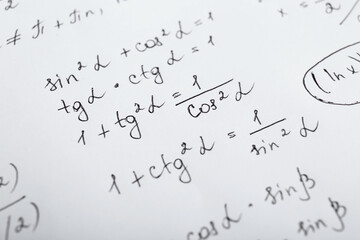 ≠ π + πn,
x = /2
sin²α + cos²α = 1
tgα · ctgα = 1
1 + tg²α = 1/cos²α
(ln x)
1 + ctg²α = 1/sin²α
/2)
cosα · sinβ
sinβ